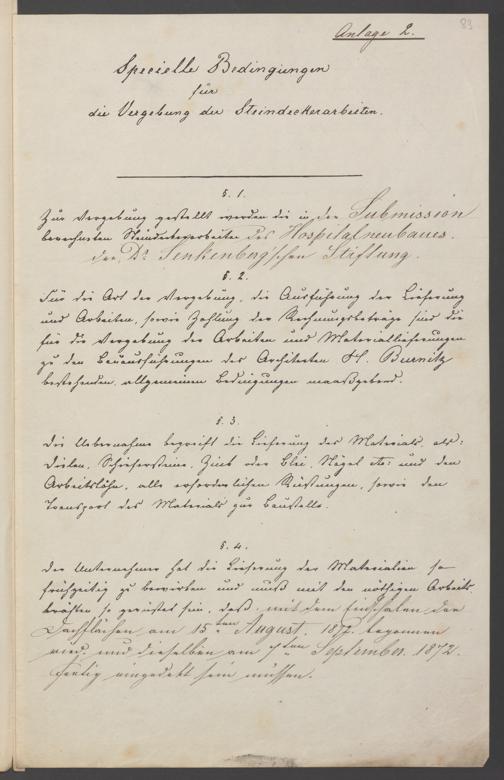 83
Anlage 2.
Specielle Bedingungen
für
die Vergebung der Steindeckerarbeiten.
§. 1.
Zur Vergebung gestellt werden die in der Submission
berechneten Steindeckerarbeiten des Hospitalneubaues.
der Dr Senkenberg'schen Stiftung.
§. 2.
Für die Art der Vergebung, die Ausführung der Lieferung
und Arbeiten, sowie Zahlung der Rechnungsbeträge sind die
für die Vergebung der Arbeiten und Materiallieferungen
zu den Bauausführungen des Architekten H. Burnitz
bestehenden, allgemeinen Bedingungen maaßgebend.
§. 3.
Die Uebernahme begreift die Lieferung des Materials, als:
Dielen, Schiefersteine, Zink oder Blei, Nägel etc: und den
Arbeitslohn, alle erforderlichen Rüstungen, sowie den
Transport des Materials zur Baustelle.
§. 4.
Der Unternehmer hat die Lieferung der Materialien so
frühzeitig zu bewirken und muß mit den nöthigen Arbeits-
kräften so gerüstet sein, daß mit dem Einschalen der
Dachflächen am 15ten August. 1872. begonnen
wird. und dieselben am ten September 1872.
fertig eingedekt sein müssen.